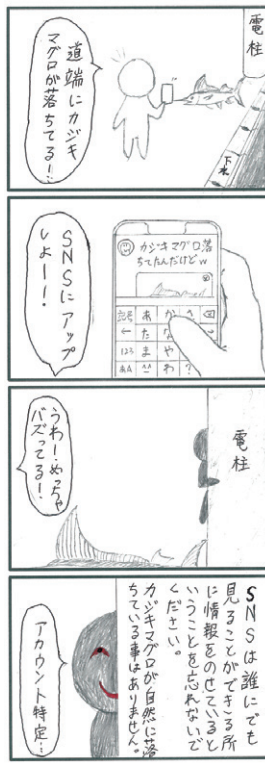 電柱
下水
道端にカジキ
マグロが落ちてる!!
カジキマグロ落
ちてたんだけどw
記号 あ か さ
← た な
123 ま や
あA ^^ わ 、?
SNSにアップ
しよー!!
電柱
うわ!めっちゃ
バズってる!
SNSは誰にでも
見ることができる所
に情報をのせていると
いうことを忘れないで
ください。
カジキマグロが自然に落
ちている事はありません。
アカウント特定!!